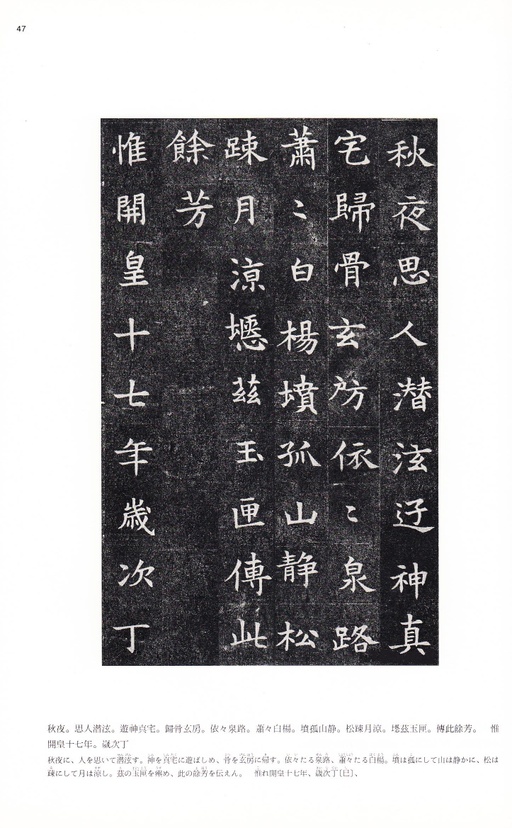 47
秋夜思人潜泫迂神真
宅歸骨玄房依〻泉路
蕭〻白楊墳孤山静松
踈月涼壥茲玉匣傳此
餘芳
惟開皇十七年歳次丁
秋夜。思人潜泫。遊神真宅。歸骨玄房。依々泉路。蕭々白楊。墳孤山静。松疎月涼。茲玉匣。傳此餘芳。 惟
開皇十七年。歳次丁
秋夜に、人を思いて潜泫す。神を真宅に遊ばしめ、骨を玄房に帰す。依々たる泉路、蕭々たる白楊。墳は孤にして山は静かに、松は
疎にして月は涼し。茲の玉匣を め、此の餘芳を伝えん。 惟れ開皇十七年、歳次丁〔巳〕、